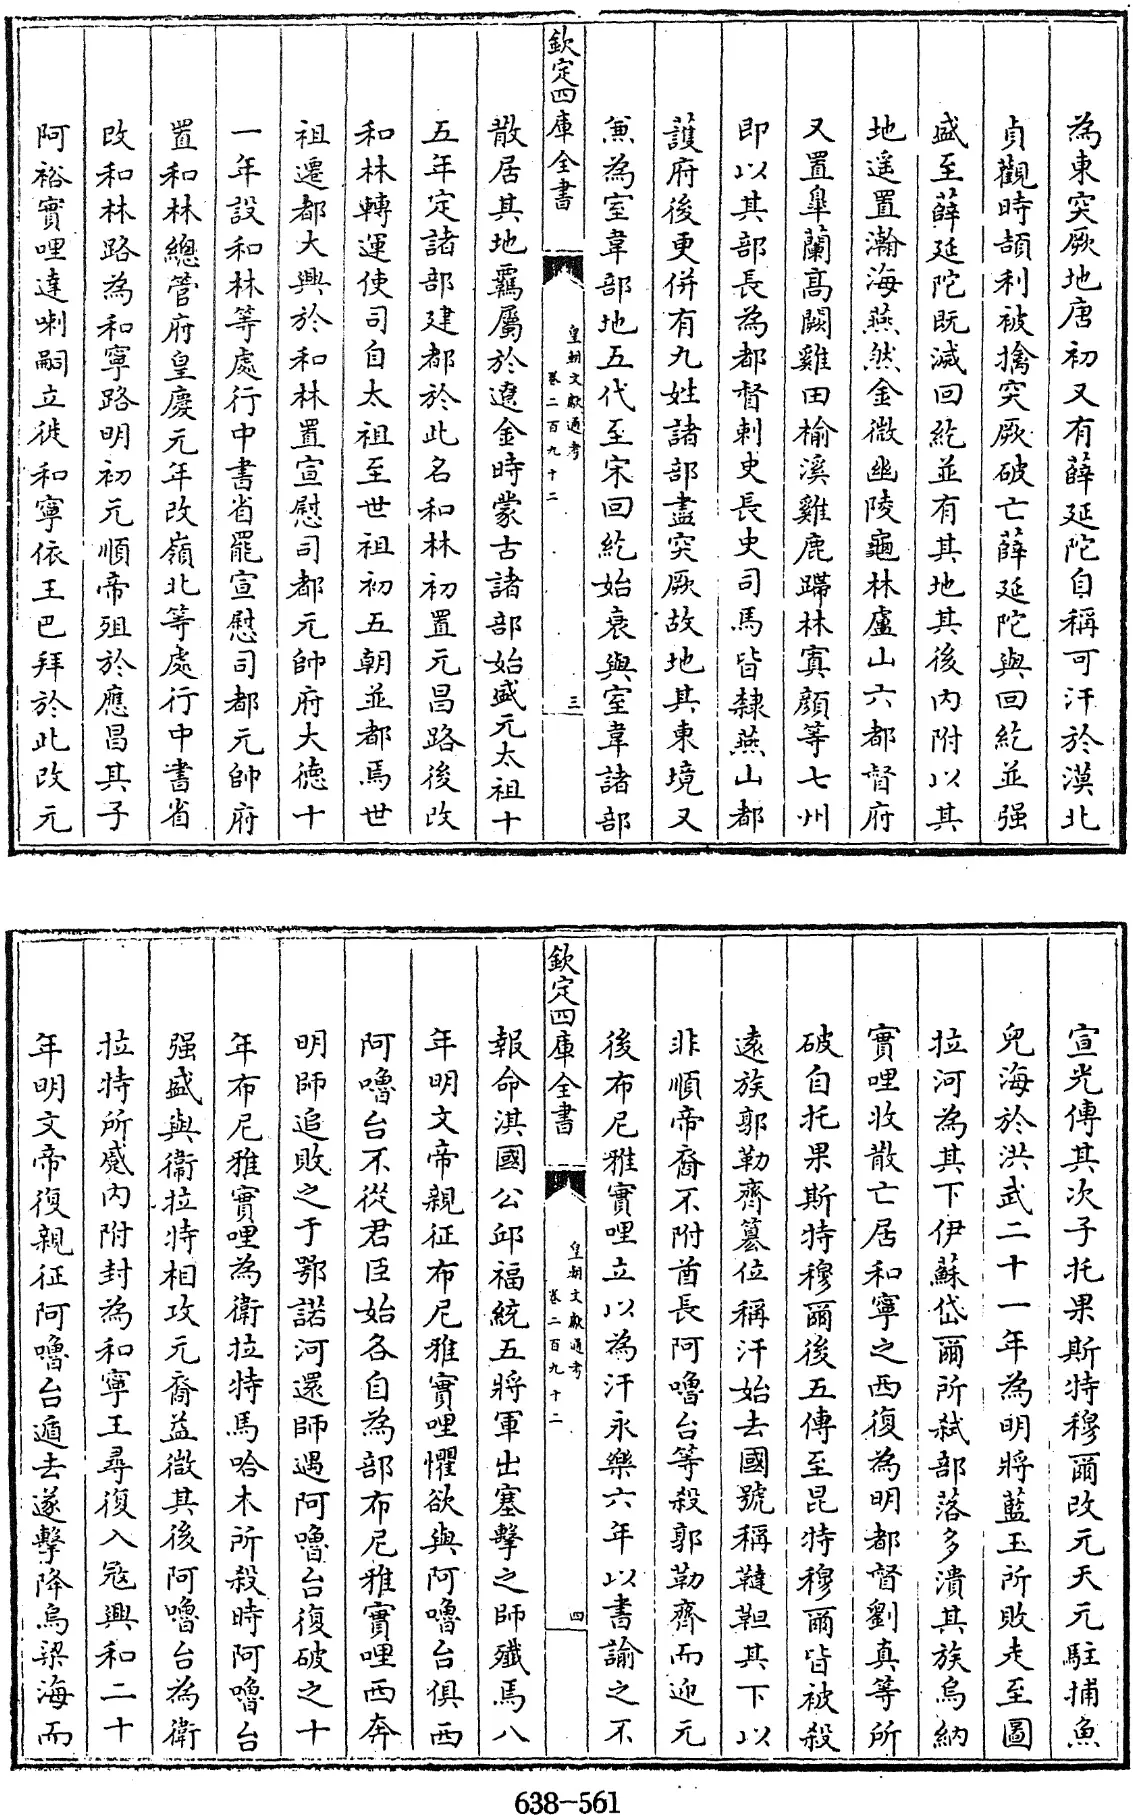 為東突厥地唐初又有薛延陀自稱可汗於漠北
貞觀時頡利被擒突厥破亡薛延陀與回紇並强
盛至薛延陀既滅回紇並有其地其後内附以其
地遥置瀚海燕然金微幽陵龜林盧山六都督府
又置臯蘭髙闕雞田榆溪雞鹿蹛林寘顔等七州
即以其部長為都督刺史長史司馬皆隸燕山都
護府後更併有九姓諸部盡突厥故地其東境又
兼為室韋部地五代至宋回紇始衰與室韋諸部
欽定四庫全書
皇朝文獻通考
卷二百九十二
三
散居其地羈屬於遼金時蒙古諸部始盛元太祖十
五年定諸部建都於此名和林初置元昌路後改
和林轉運使司自太祖至世祖初五朝並都焉世
祖遷都大興於和林置宣慰司都元帥府大德十
一年設和林等處行中書省罷宣慰司都元帥府
置和林總管府皇慶元年改嶺北等處行中書省
改和林路為和寧路明初元順帝殂於應昌其子
阿裕實哩達喇嗣立徙和寧依王巴拜於此改元
宣光傳其次子托果斯特穆爾改元天元駐捕魚
兒海於洪武二十一年為明將藍玉所敗走至圖
拉河為其下伊蘇岱爾所弑部落多潰其族烏納
實哩收散亡居和寧之西復為明都督劉真等所
破自托果斯特穆爾後五傳至昆特穆爾皆被殺
逺族郭勒齊簒位稱汗始去國號稱韃靼其下以
非順帝裔不附酋長阿嚕台等殺郭勒齊而迎元
後布尼雅實哩立以為汗永樂六年以書諭之不
欽定四庫全書
皇朝文獻通考
卷二百九十二
四
報命淇國公邱福統五將軍出塞擊之師殱焉八
年明文帝親征布尼雅實哩懼欲與阿嚕台俱西
阿嚕台不從君臣始各自為部布尼雅實哩西奔
明師追敗之于鄂諾河還師遇阿嚕台復破之十
年布尼雅實哩為衛拉特馬哈木所殺時阿嚕台
强盛與衛拉特相攻元裔益微其後阿嚕台為衛
拉特所蹙内附封為和寧王尋復入冦興和二十
年明文帝復親征阿嚕台遁去遂擊降烏梁海而
638-561